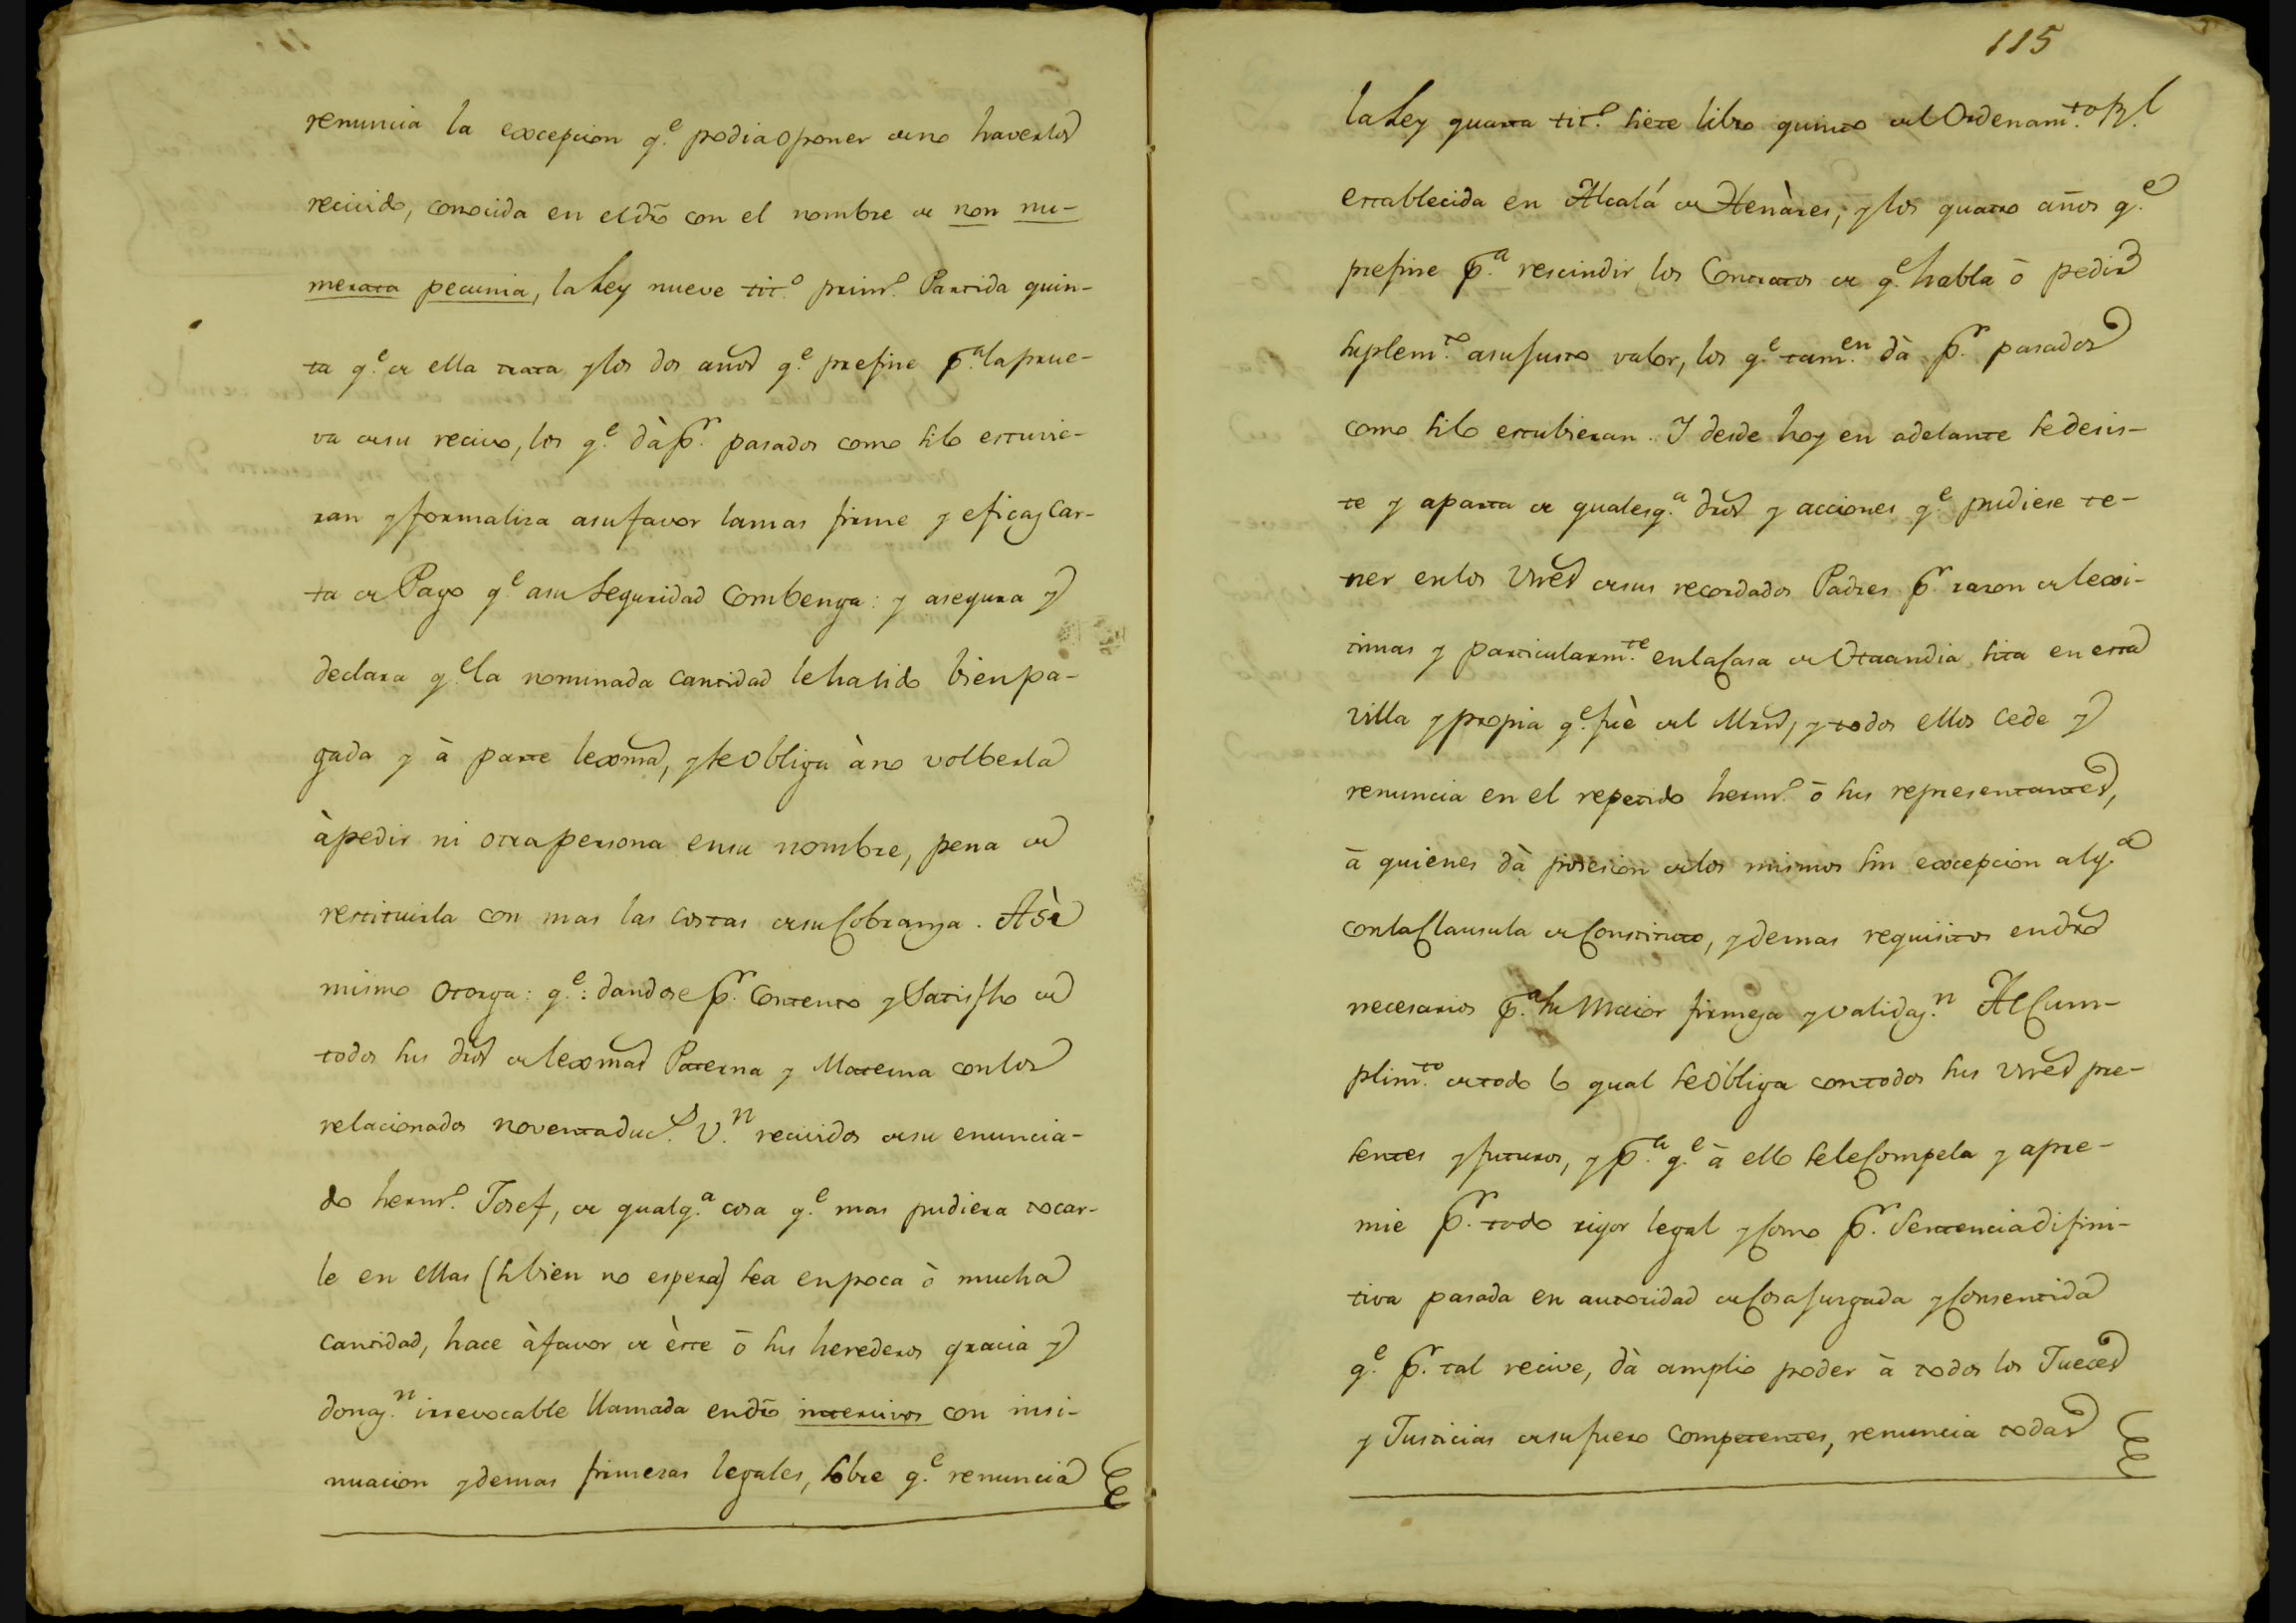 renuncia la excepcion q.e podia oponer de no haverlos
recivido, conocida en el dro con el nombre de non nu-
merata pecunia, la Ley nueve tit.o prim.o Partida quin-
ta q.e de ella trata y los dos años q.e prefine p.a la prue-
va de su recivo, los q.e dà p.r pasados como si lo estuvie-
ran y formaliza a su favor la mas firme y eficaz Car-
ta de Pago q.e a su seguridad combenga: y asegura y
declara q.e la nominada cantidad le ha sido bien pa-
gada y à parte lexma, y se obliga à no volberla
à pedir ni otra persona en su nombre, pena de
restituirla con mas las costas de su Cobranza. Asi
mismo otorga: q.e: dandose p.r contento y Satisfho de
todos sus dros de lexmas Paterna y Materna con los
relacionados noventa duc.s v.n recividos de su enuncia-
do herm.o Josef, de qualq.a cosa q.e mas pudiera tocar-
le en ellas (si bien no espera) sea en poca ò mucha
cantidad, hace à favor de èste ò sus herederos gracia y
donaz.n irrevocable llamada en dro intervivos con insi-
nuacion y demas firmezas legales, sobre q.e renuncia
115
la Ley quarta tit.o siete libro quinto del Ordenam.to R.l
establecida en Alcalá de Henàres; y los quatro años q.e
prefine p.a rescindir los Contratos de q.e habla ò pedir
suplem.to a su justo valor, los q.e tam.en dà p.r pasados
como si lo estubieran. Y desde hoy en adelante se desis-
te y aparta de qualesq.a dros y acciones q.e pudiese te-
ner en los vnes de sus recordados Padres p.r razon de lexi-
timas y particularm.te en la Casa de Otaandia sita en esta
villa y propia q.e fuè del Mrno, y todos ellos cede y
renuncia en el repetido herm.o ò sus representantes,
à quienes dà posesion de los mismos sin excepcion alg.a
con la Clausula de Constituto, y demas requisitos en dro
necesarios p.a su maior firmeza y validaz.n Al Cum-
plim.to de todo lo qual se obliga con todos sus vnes pre-
sentes y futuros, y p.a q.e à ello se le Compela y apre-
mie p.r todo rigor legal y Como p.r Sentencia difini-
tiva pasada en autoridad de Cosa juzgada y Consentida
q.e p.r tal recive, dà amplio poder à todos los Jueces
y Justicias de su fuero competentes, renuncia todas